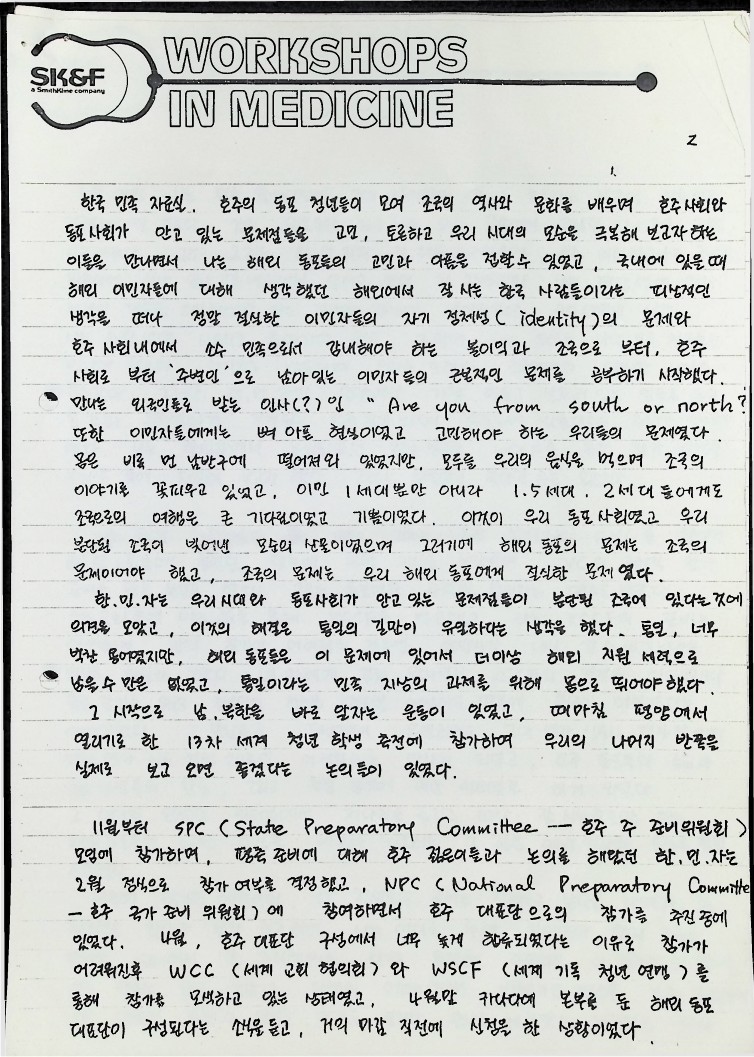 SK&F
a SmithKline company
WORKSHOPS
IN MEDICINE
2
1.
한국 민족 자료실. 호주의 동포 청년들이 모여 조국의 역사와 문화를 배우며 호주 사회와
동포사회가 안고 있는 문제점들을 고민, 토론하고 우리 시대의 모순을 극복해 보고자 하는
이들을 만나면서 나는 해외 동포들의 고민과 아픔을 접할 수 있었고, 국내에 있을 때
해외 이민자들에 대해 생각했던 해외에서 잘 사는 한국 사람들이라는 피상적인
생각을 떠나 정말 절실한 이민자들의 자기 정체성 (identity)의 문제와
호주 사회내에서 소수 민족으로서 감내해야 하는 불이익과 조국으로 부터, 호주
사회로 부터 '주변인'으로 남아있는 이민자들의 근본적인 문제를 공부하기 시작했다.
만나는 외국인들로 받는 인사(?)인 "Are you from south or north?
또한 이민자들에게는 뼈 아픈 현실이었고 고민해야 하는 우리들의 문제였다.
몸은 비록 먼 남반구에 떨어져 와 있었지만, 모두들 우리의 음식을 먹으며 조국의
이야기를 꽃피우고 있었고, 이민 1세대 뿐만 아니라 1.5세대, 2세대들에게도
조국으로의 여행은 큰 기다림이었고 기쁨이었다. 이것이 우리 동포사회였고 우리
분단된 조국이 빚어낸 모순의 산물이었으며 그러기에 해외 동포의 문제는 조국의
문제이어야 했고, 조국의 문제는 우리 해외 동포에게 절실한 문제였다.
한.민.자는 우리 시대와 동포사회가 안고 있는 문제점들이 분단된 조국에 있다는 것에
의견을 모았고, 이것의 해결은 통일의 길만이 유일하다는 생각을 했다. 통일, 너무
벅찬 용어였지만, 해외 동포들은 이 문제에 있어서 더이상 해외 지원 세력으로
남을 수 만은 없었고, 통일이라는 민족 지상의 과제를 위해 몸으로 뛰어야 했다.
그 시작으로 남.북한을 바로 알자는 운동이 있었고, 때마침 평양에서
열리기로 한 13차 세계 청년 학생 축전에 참가하여 우리의 나머지 반쪽을
실제로 보고 오면 좋겠다는 논의들이 있었다.
11월부터 SPC (State Preparatory Committee -- 호주 주 준비위원회)
모임에 참가하며, 평축 준비에 대해 호주 젊은이들과 논의를 해왔던 한.민.자는
2월 정식으로 참가 여부를 결정했고, NPC (National Preparatory Committe
- 호주 국가 준비 위원회)에 참여하면서 호주 대표단으로의 참가를 추진중에
있었다. 4월, 호주 대표단 구성에서 너무 늦게 합류되었다는 이유로 참가가
어려워진후 WCC (세계 교회 협의회)와 WSCF (세계 기독 청년 연맹)를
통해 참가를 모색하고 있는 상태였고, 4월말 카나다에 본부를 둔 해외 동포
대표단이 구성된다는 소식을 듣고, 거의 마감 직전에 신청을 한 상황이었다.